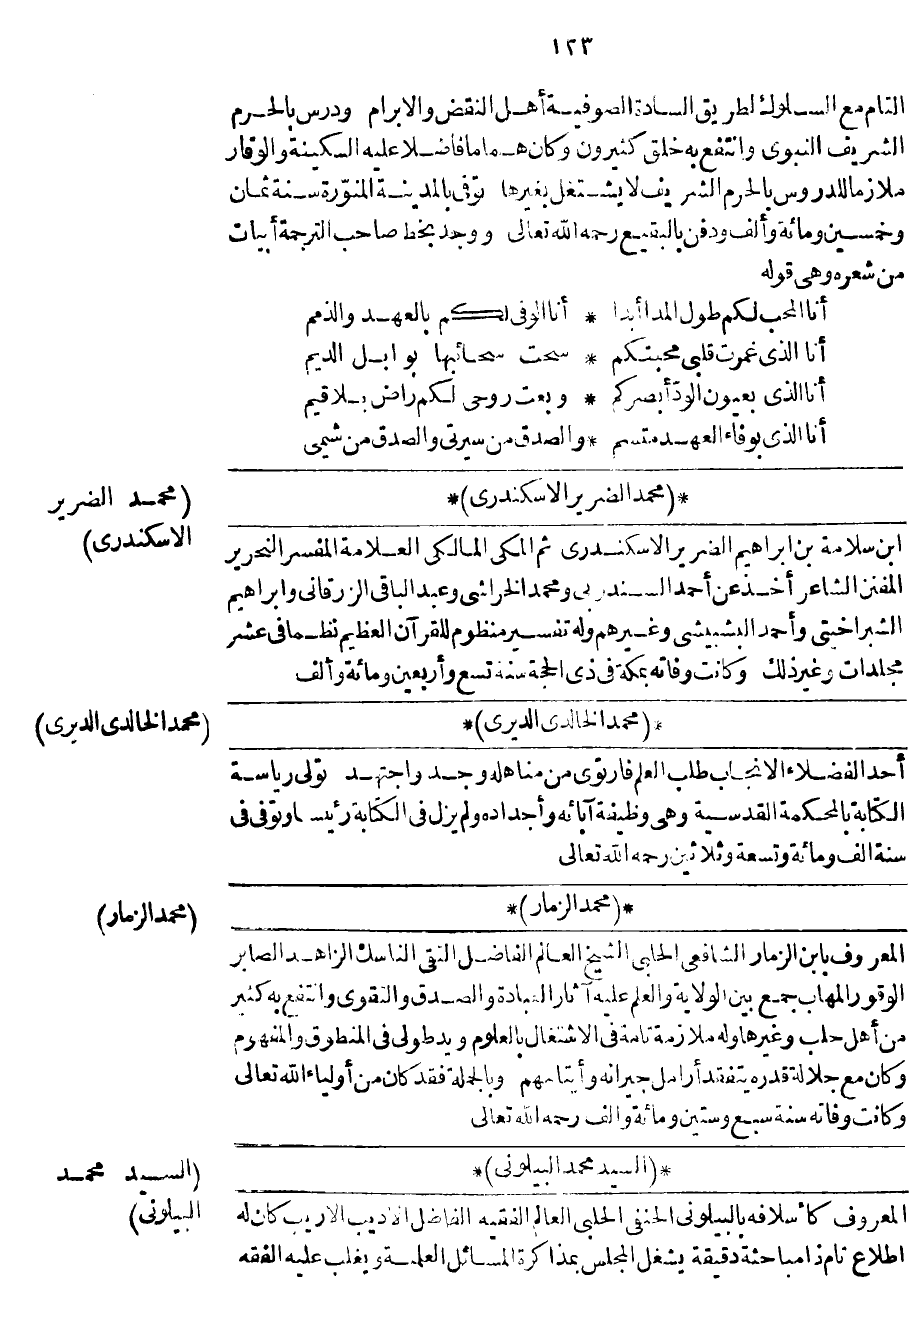 ١٢٣
التام مع السلوك لطريق السادة الصوفية أهل النقض والابرام ودرس بالحرم
الشريف النبوى وانتفع به خلق كثيرون وكان هماما فاضلا عليه السكينة والوقار
ملازما للدروس بالحرم الشريف لا يشتغل بغيرها توفى بالمدينة المنوّرة سنة ثمان
وخمسين ومائة وألف ودفن بالبقيع رحمه الله تعالى ووجد بخط صاحب الترجمة أبيات
من شعره وهى قوله
أنا المحب لكم طول المدا أبدا * أنا الوفى لكم بالعهد والذمم
أنا الذى غمرت قلبى محبتكم * سحت سحائبها بوابل الديم
أنا الذى بعيون الودّ أبصركم * وبعت روحى لكم راض بلا قيم
أنا الذى بوفاء العهد متسم * والصدق من سيرتى والصدق من شيمى
*(محمد الضرير الاسكندرى)*
(محمد الضرير
الاسكندرى)
ابن سلامة بن ابراهيم الضرير الاسكندرى ثم المكى المالكى العلامة المفسر النحرير
المفنن الشاعر أخذ عن أحمد السندربى ومحمد الخراشى وعبد الباقى الزرقانى وابراهيم
الشبراخيتى وأحمد البشبيشى وغيرهم وله تفسير منظوم للقرآن العظيم نظما فى عشر
مجلدات وغير ذلك وكانت وفاته بمكة فى ذى الحجة سنة تسع وأربعين ومائة وألف
*(محمد الخالدى الديرى)*
(محمد الخالدى الديرى)
أحد الفضلاء الانجاب طلب العلم فارتوى من مناهله وجد واجتهد تولى رياسة
الكتابة بالمحكمة القدسية وهى وظيفة آبائه وأجداده ولم يزل فى الكتابة رئيسا وتوفى فى
سنة الف ومائة وتسعة وثلاثين رحمه الله تعالى
*(محمد الزمار)*
(محمد الزمار)
المعروف بابن الزمار الشافعى الحلبى الشيخ العالم الفاضل التقى الناسك الزاهد الصابر
الوقور المهاب جمع بين الولاية والعلم عليه آثار العبادة والصدق والتقوى وانتفع به كثير
من أهل حلب وغيرها وله ملازمة تامة فى الاشتغال بالعلوم ويد طولى فى المنطوق والمفهوم
وكان مع جلالة قدره يتفقد أرامل جيرانه وأيتامهم وبالجملة فقد كان من أولياء الله تعالى
وكانت وفاته سنة سبع وستين ومائة والف رحمه الله تعالى
*(السيد محمد البيلونى)*
(السيد محمد
البيلونى)
المعروف كأسلافه بالبيلونى الحنفى الحلبى العالم الفقيه الفاضل الاديب الاريب كان له
اطلاع تام ذا مباحثة دقيقة يشغل المجلس بمذاكرة المسائل العلمية ويغلب عليه الفقه